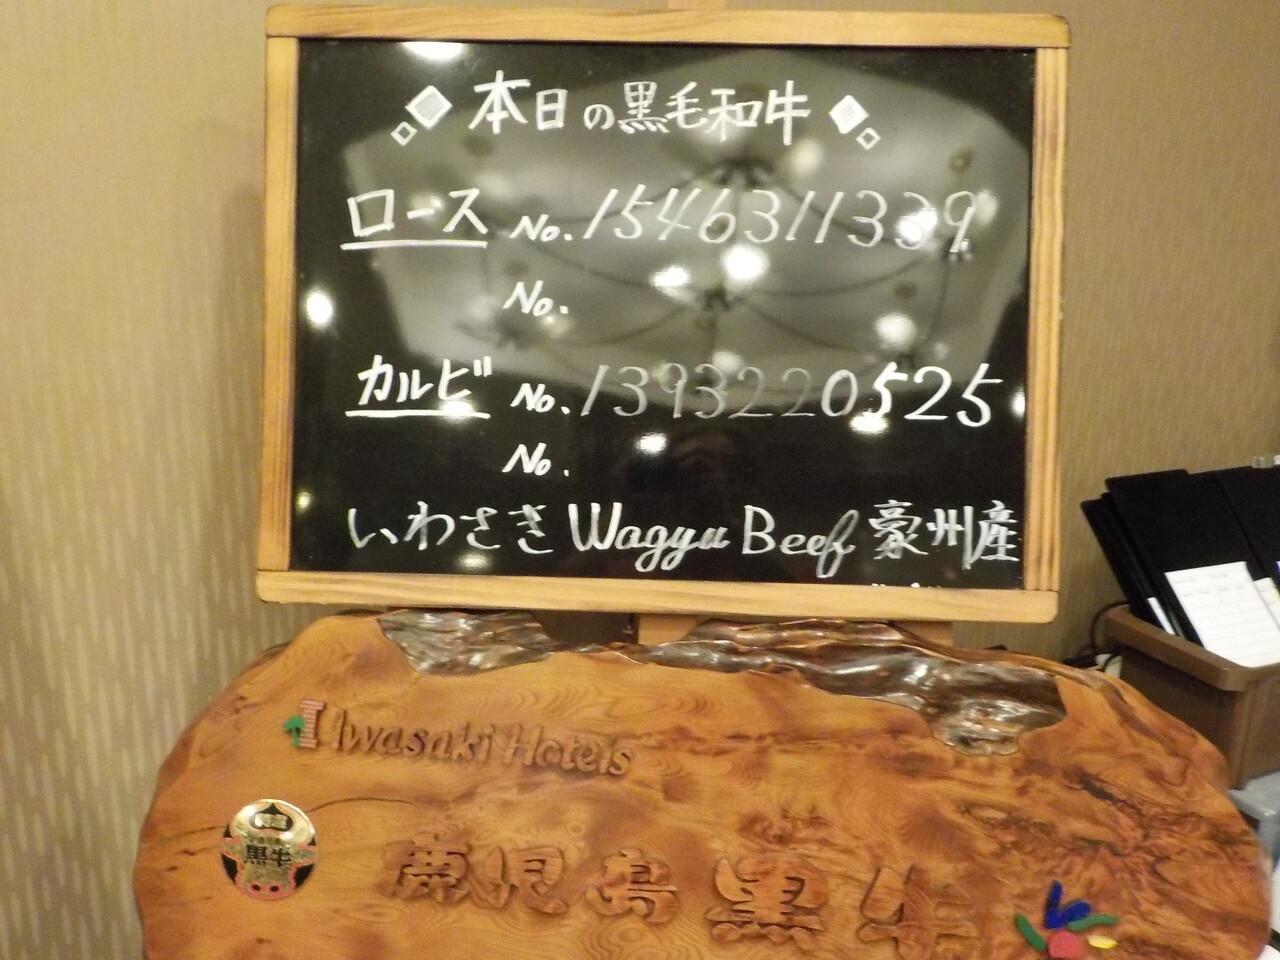 本日の黒毛和牛
ロース No. 1546311339
No.
カルビ No. 1393220525
No.
いわさき Wagyu Beef 豪州産
Iwasaki Hotels
黒牛
鹿児島黒牛